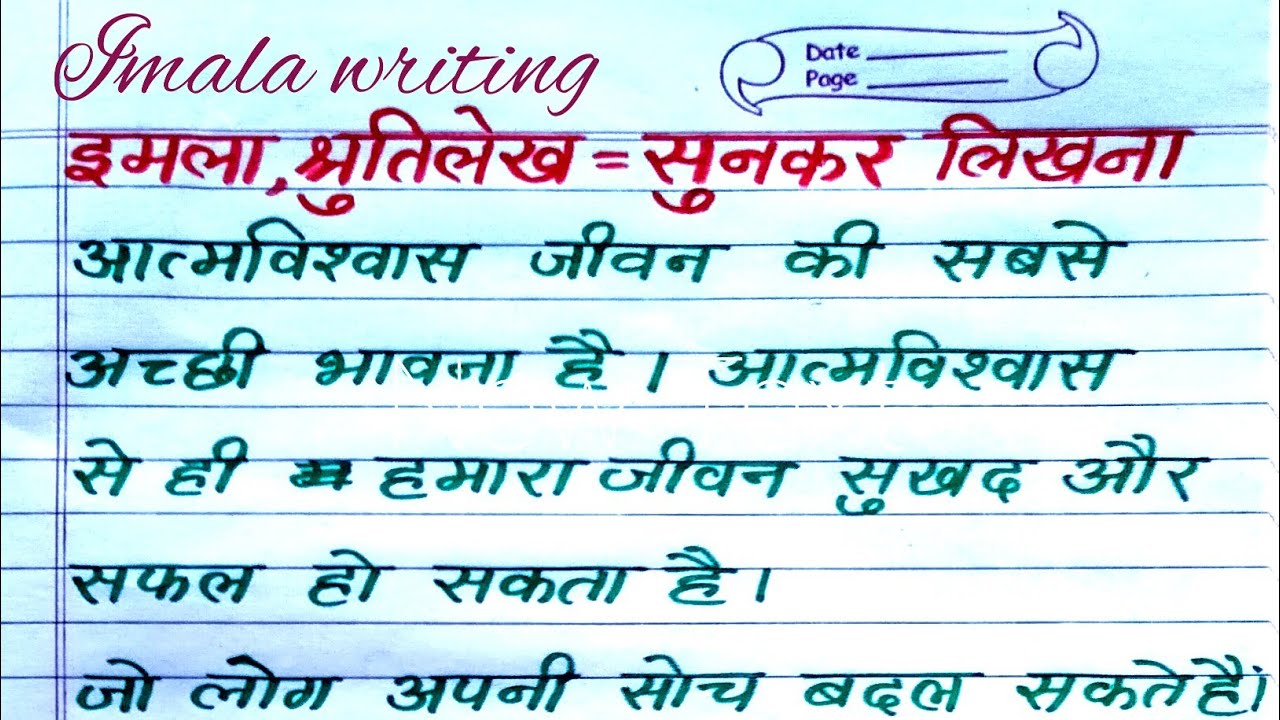 Imala writing
Date
Page
इमला, श्रुतिलेख = सुनकर लिखना
आत्मविश्वास जीवन की सबसे
अच्छी भावना है। आत्मविश्वास
से ही हमारा जीवन सुखद और
सफल हो सकता है।
जो लोग अपनी सोच बदल सकते हैं।